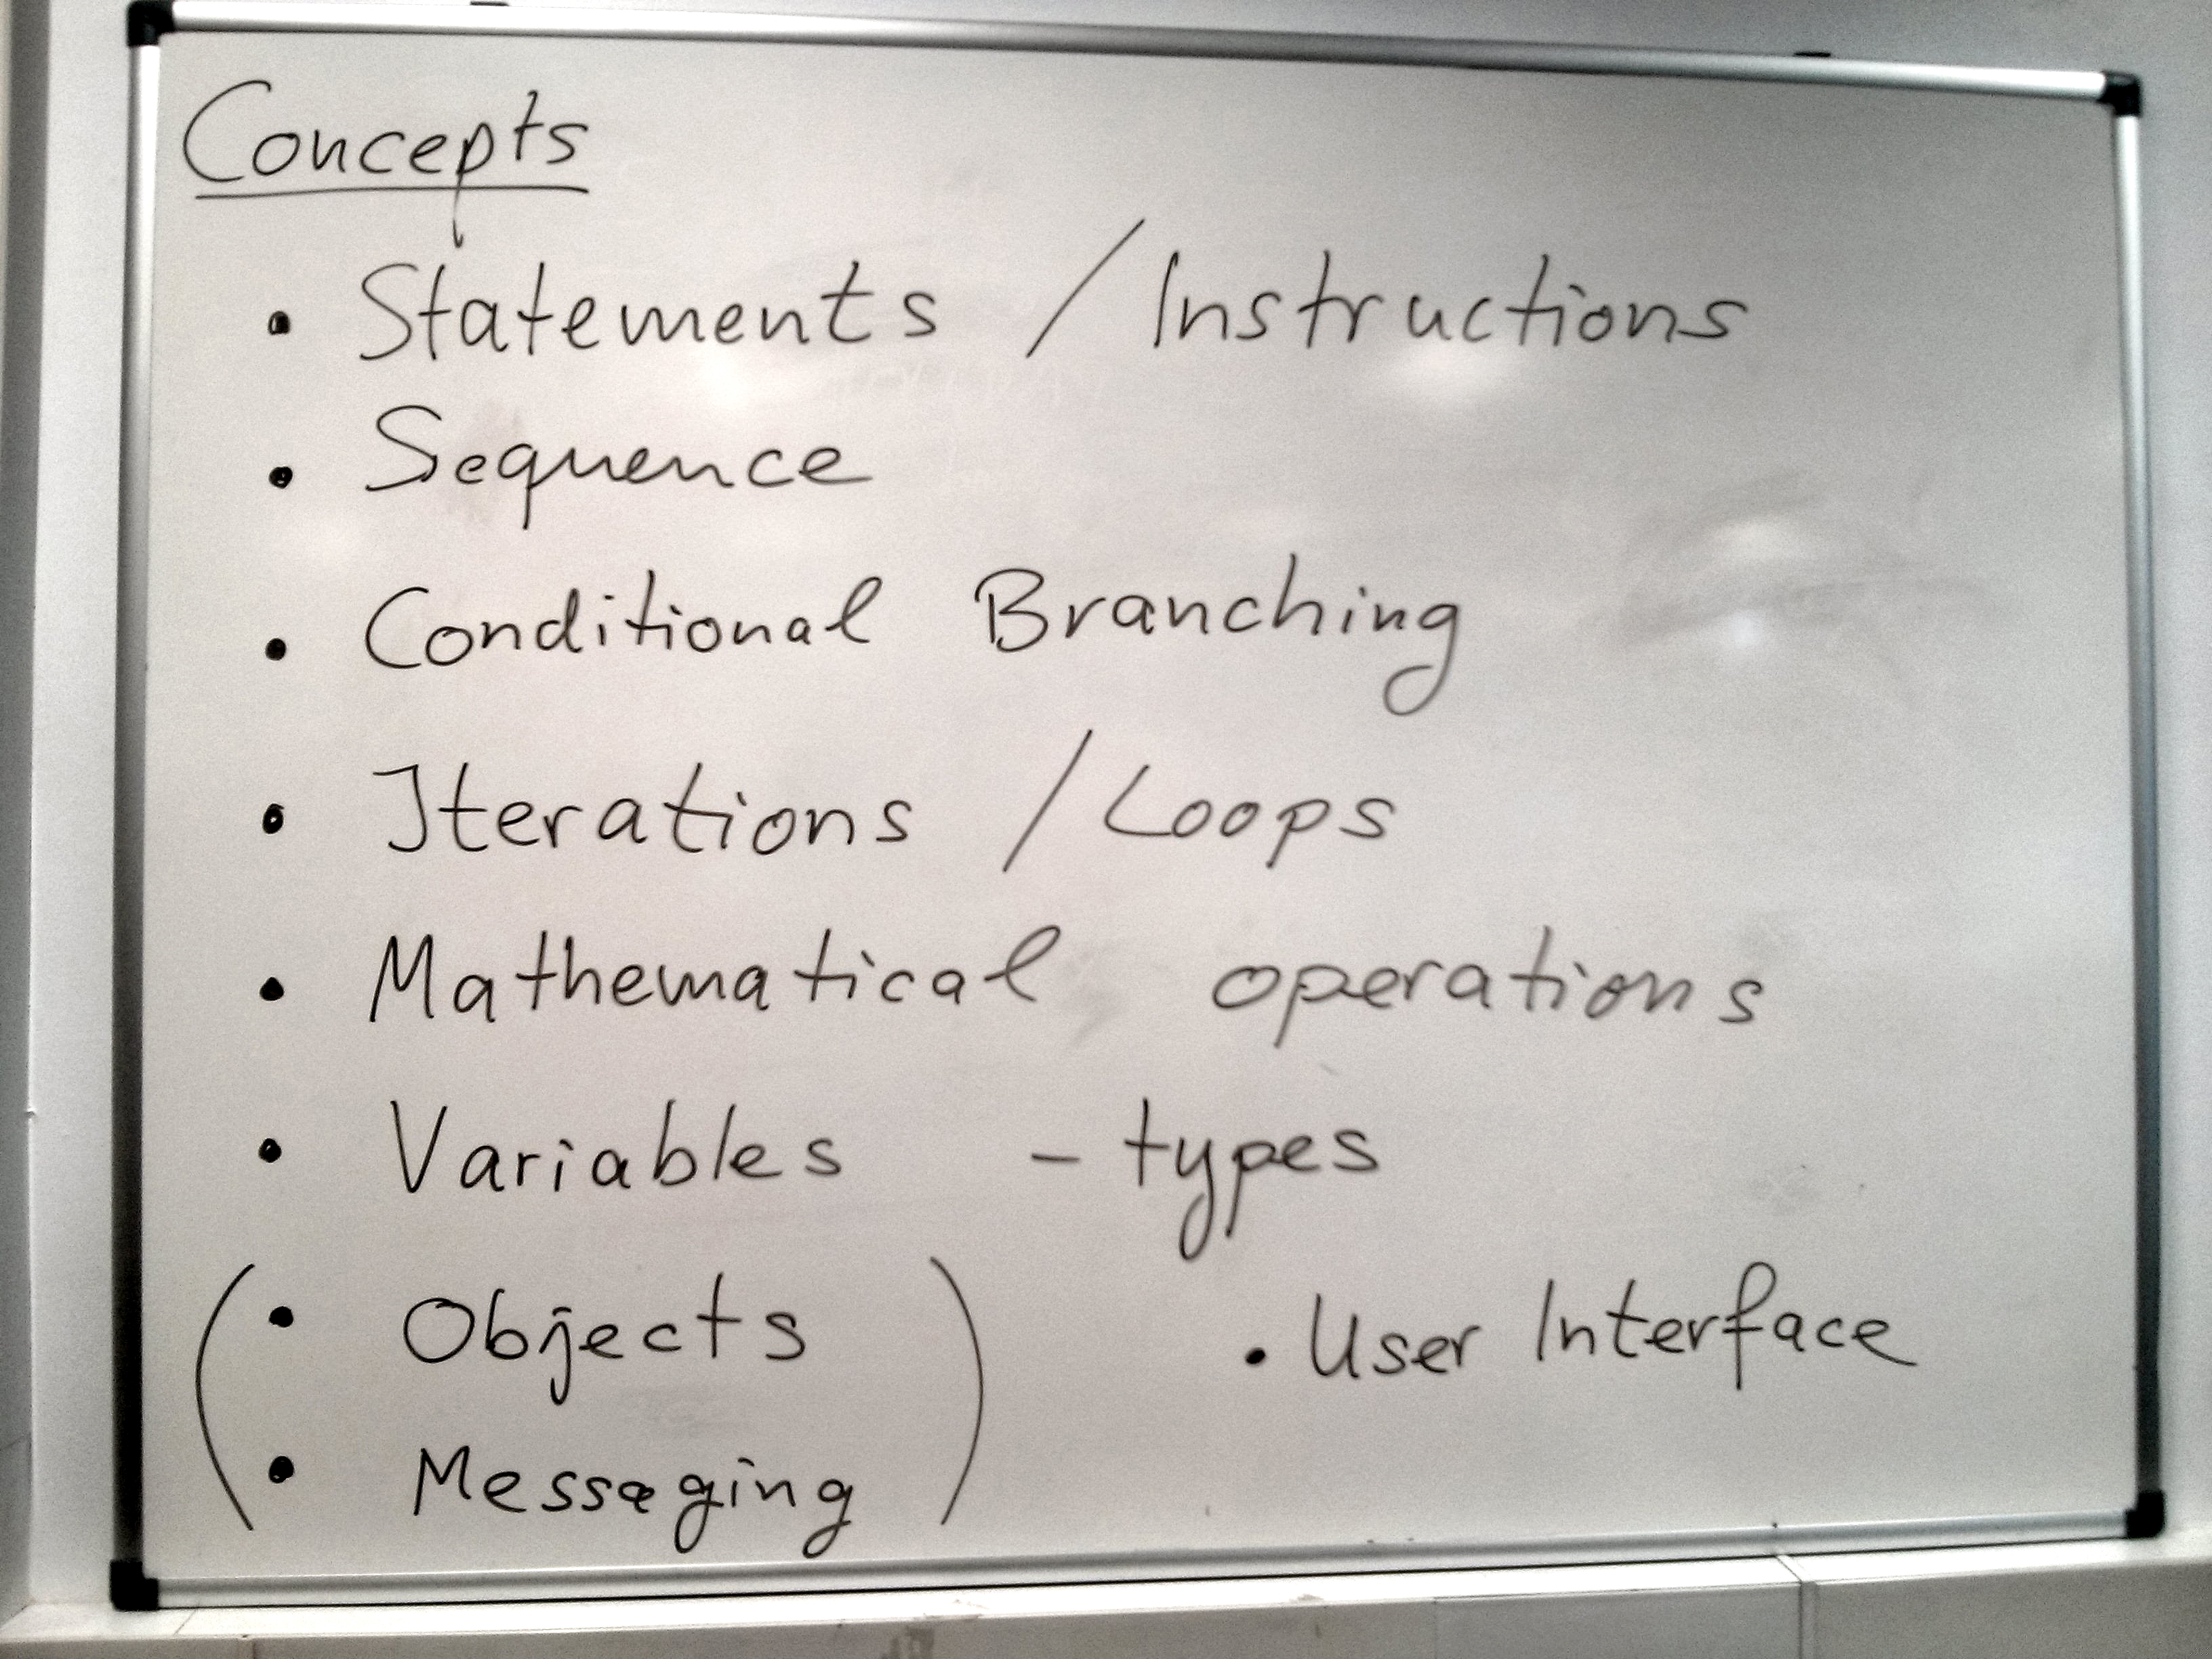 Concepts
• Statements / Instructions
• Sequence
• Conditional Branching
• Iterations / Loops
• Mathematical operations
• Variables - types
( • Objects )
• User Interface
• Messaging